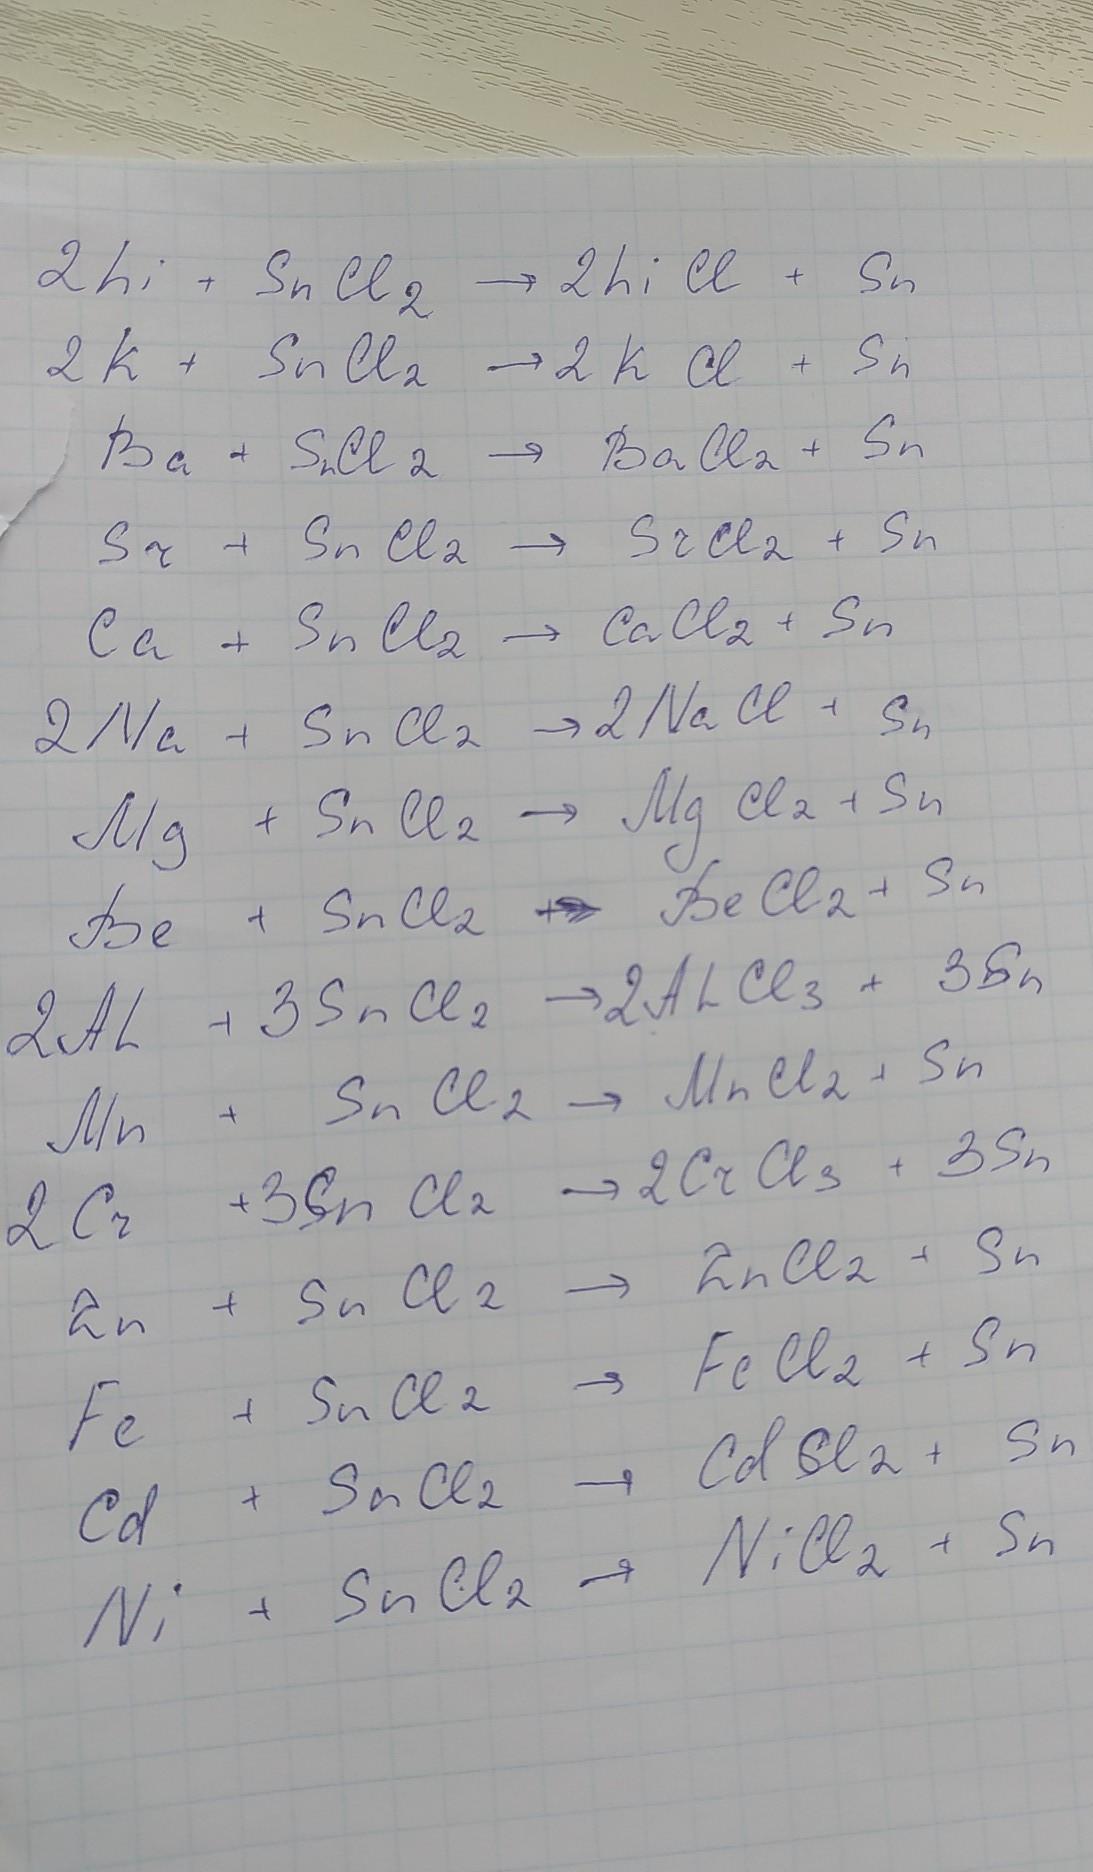 2Li + SnCl2 → 2LiCl + Sn
2K + SnCl2 → 2KCl + Sn
Ba + SnCl2 → BaCl2 + Sn
Sr + SnCl2 → SrCl2 + Sn
Ca + SnCl2 → CaCl2 + Sn
2Na + SnCl2 → 2NaCl + Sn
Mg + SnCl2 → MgCl2 + Sn
Be + SnCl2 → BeCl2 + Sn
2AL + 3SnCl2 → 2ALCl3 + 3Sn
Mn + SnCl2 → MnCl2 + Sn
2Cr + 3SnCl2 → 2CrCl3 + 3Sn
Zn + SnCl2 → ZnCl2 + Sn
Fe + SnCl2 → FeCl2 + Sn
Cd + SnCl2 → CdCl2 + Sn
Ni + SnCl2 → NiCl2 + Sn